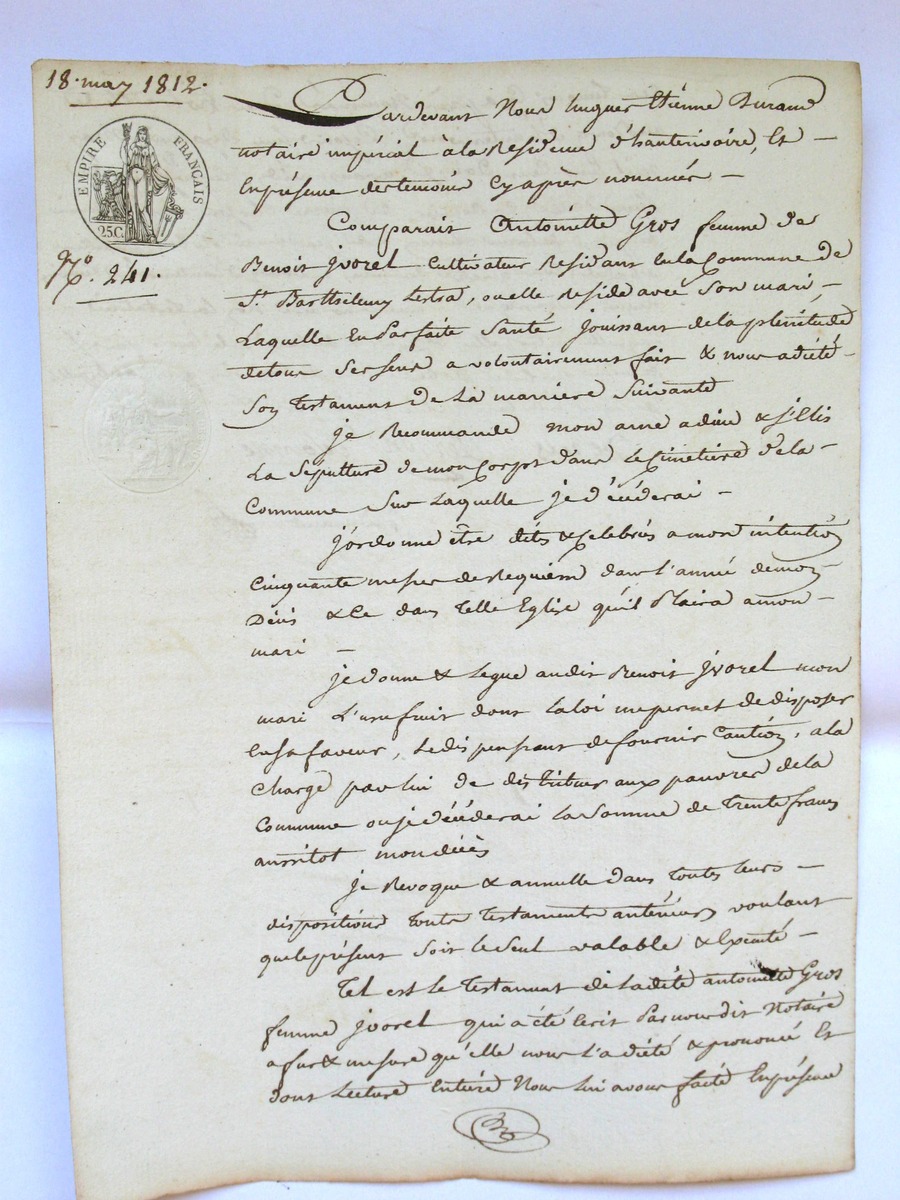 18. may 1812.
EMPIRE FRANÇAIS
25 C.
N.º 241.
Pardevant Nous hugues Etienne Durand
notaire impérial à la Residence d'hauterivoire, Et –
En présence des temoins Cy après nommés –
Comparait Antoinette Gros femme de
Benoit jvorel Cultivateur Residant En la Commune de
St. Barthelemy Lestra, ou elle Reside avec Son mari, –
Laquelle En Parfaite Santé jouissant de la plenitude
de tous Ses Sens a volontairement fait & nous a dicté –
Son Testament De La maniere Suivante
je Recommande mon ame a dieu & j'Elis
La Sepulture de mon Corps dans Le Cimetière de la –
Commune Sur Laquelle je décéderai –
j'ordonne être dites & Celebrés a mon intention
Cinquante messes de Requiem dans l'année de mon
Décès & Ce dans Telle Eglise qu'il Plaira a mon –
mari –
je donne & Legue audit Benoit jvorel mon
mari L'usufruit dont La loi me permet de disposer
En sa faveur, Le dispensant de fournir Caution, a la
Charge par lui de distribuer aux pauvres de la
Commune ou je décéderai La Somme de Trente francs
aussitot mon décès
je Revoque & annulle dans Toutes leurs –
dispositions Touts Testaments antérieurs voulant
que le présent Soit Le Seul valable & Executé –
Tel est Le Testament de Ladite antoinette Gros
femme jvorel qui a été Ecrit Par nousdit Notaire
a fur & mesure qu'elle nous l'a dicté & prononcé Et
dont Lecture Entiére Nous Lui avons faite En présence